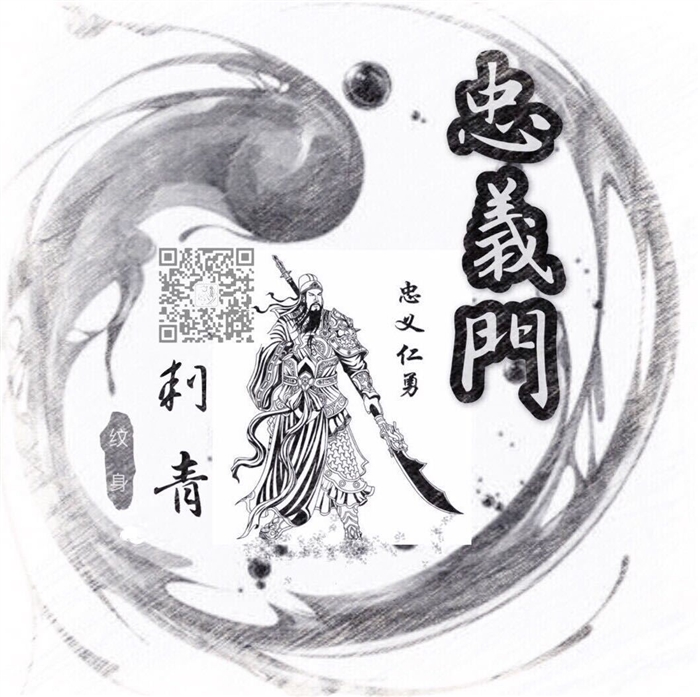 忠義門
忠义仁勇
刺青
纹身